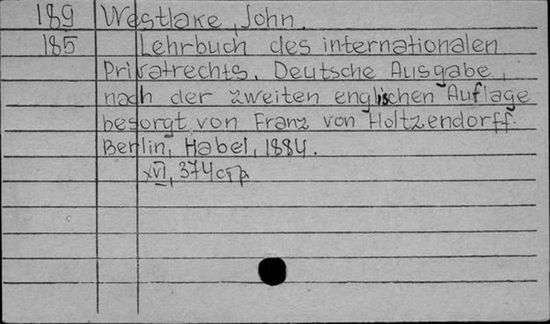 189 Westlake, John.
185 Lehrbuch des internationalen
Privatrechts. Deutsche Ausgabe,
nach der zweiten englischen Auflage
besorgt von Franz von Holtzendorff.
Berlin, Habel, 1884.
XVI, 374 стр